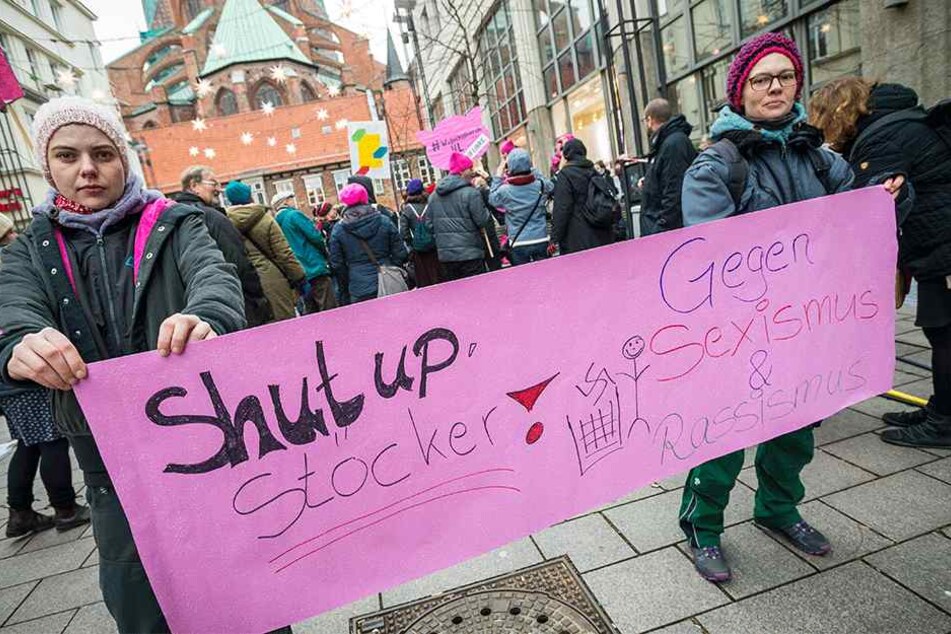 Shut up,
Stöcker!
Gegen
Sexismus
&
Rassismus